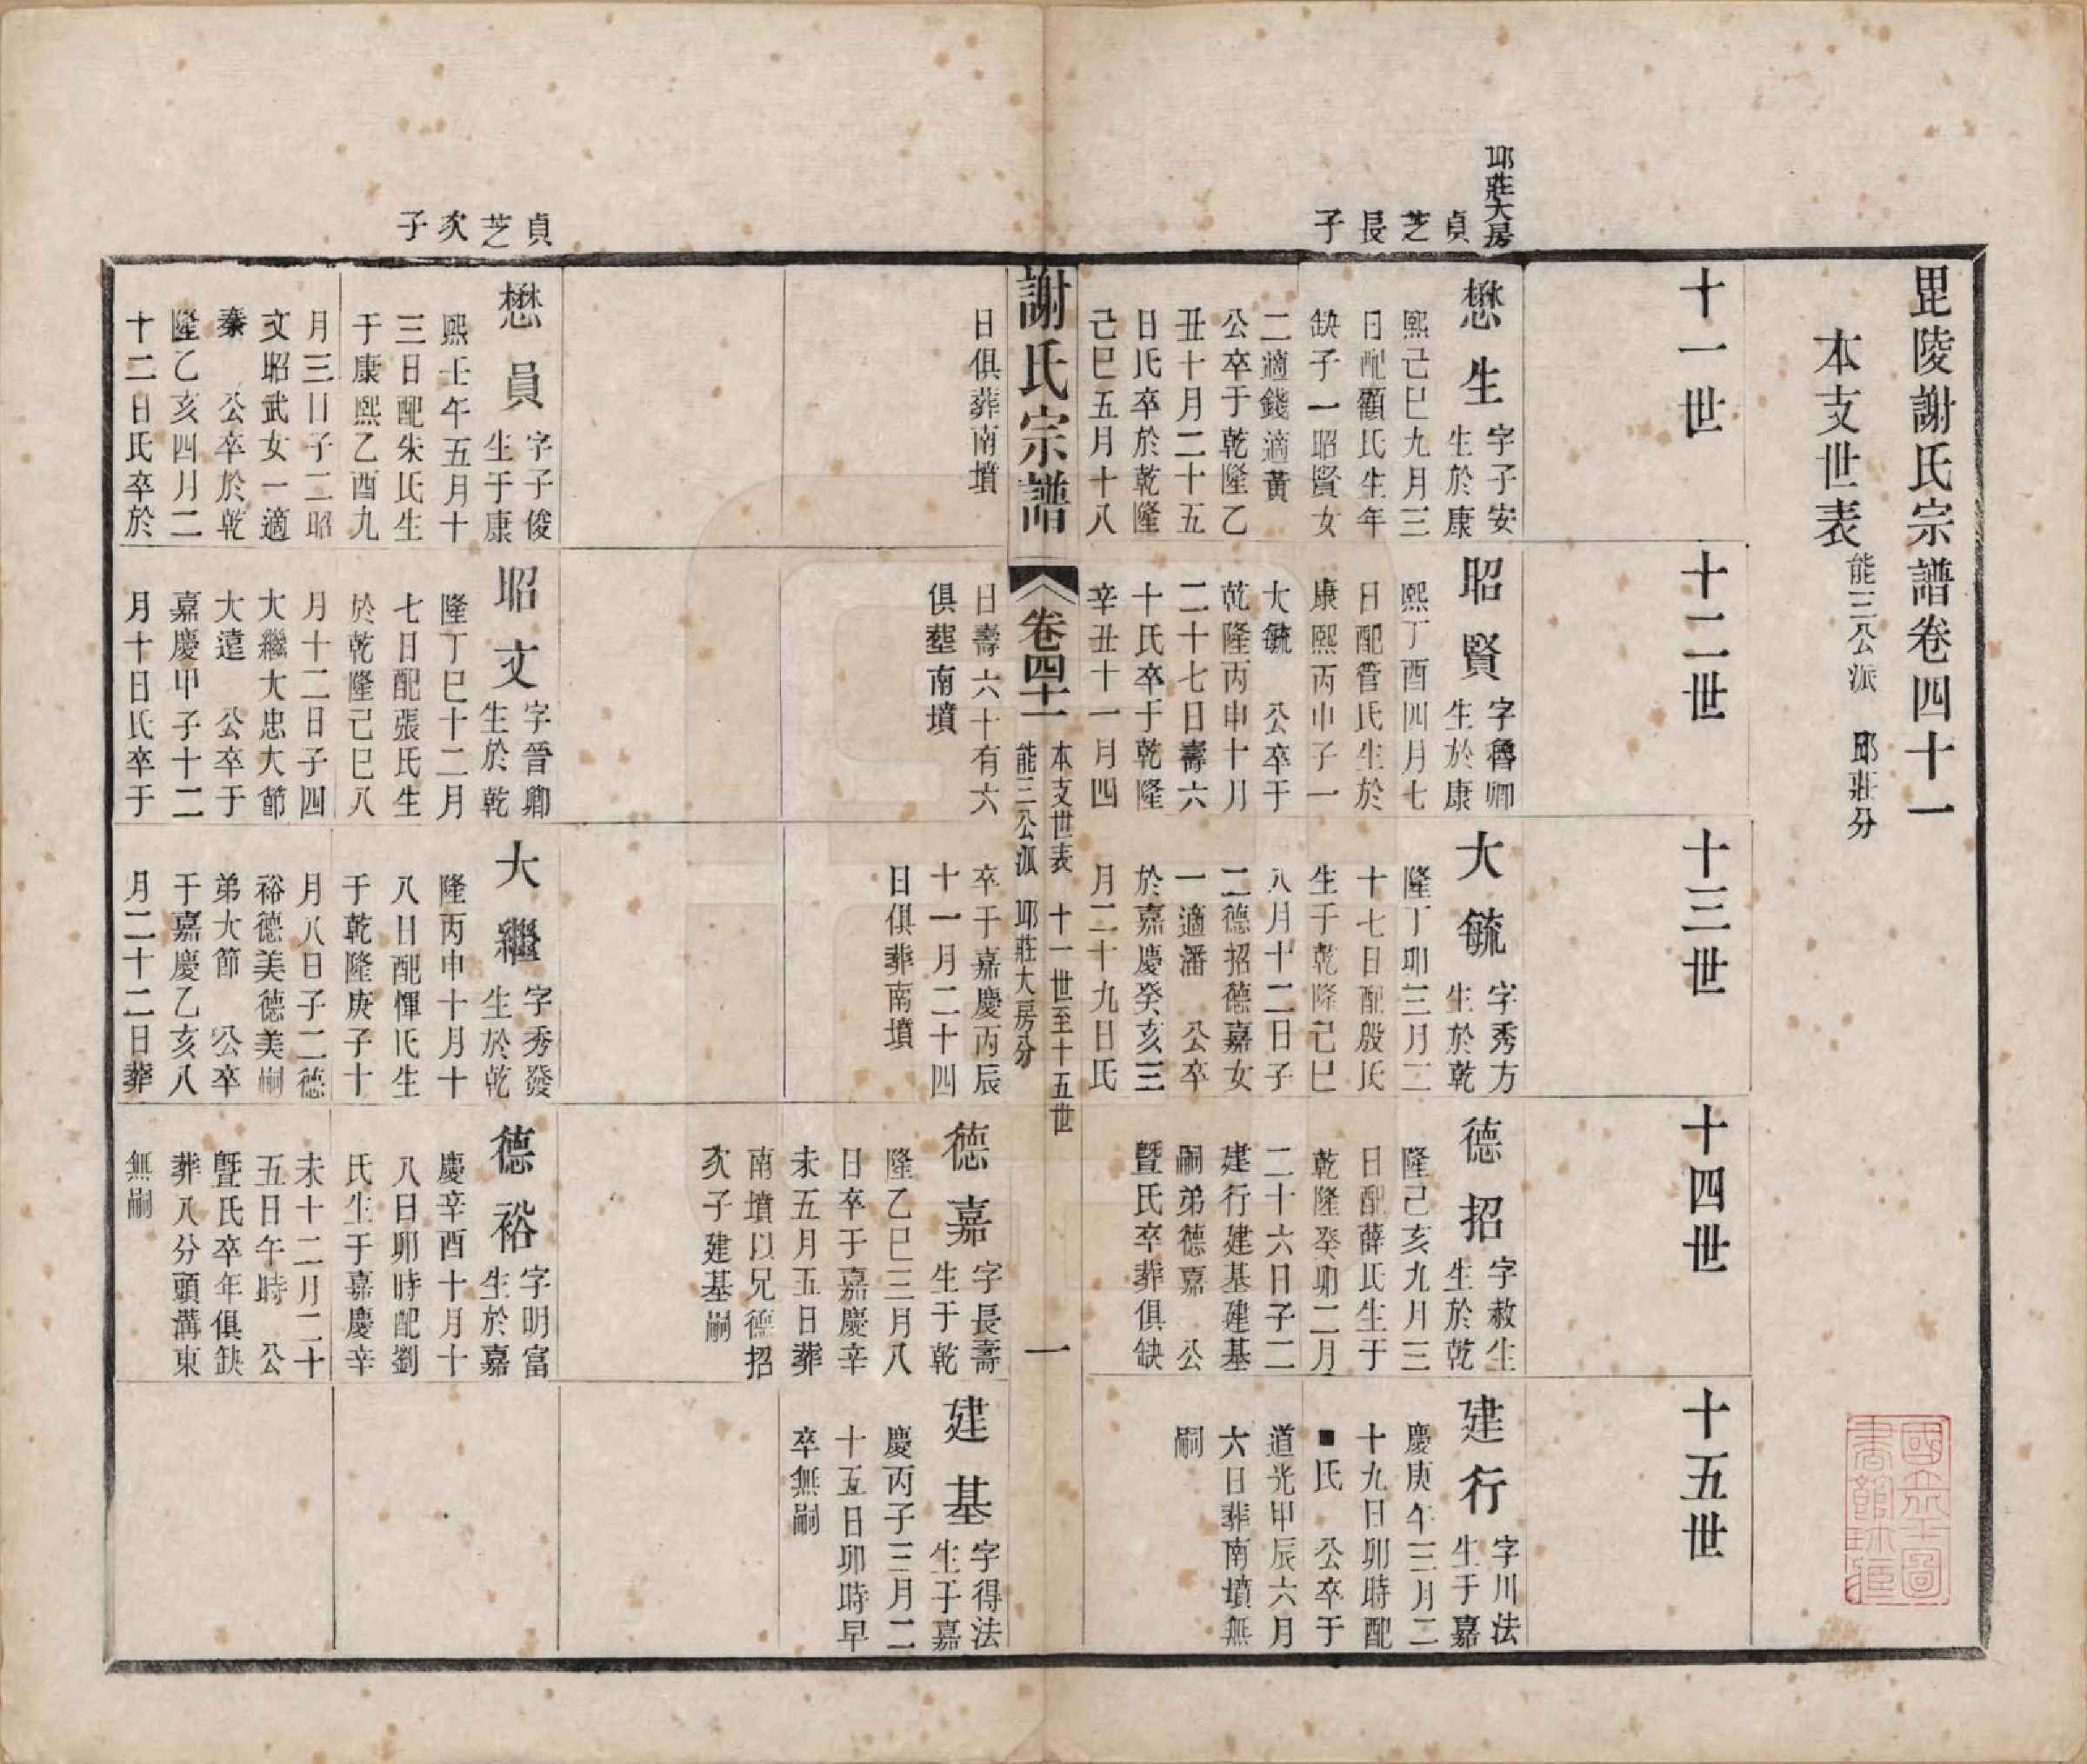 毘陵謝氏宗譜卷四十一
本支世表
能三公派　邱莊分
國立北平圖書館珍藏
十一世
十二世
十三世
十四世
十五世
邱莊大房
貞芝長子
懋生
字子安
生於康
熙己巳九月三
日配顧氏生年
缺子一昭賢女
二適錢適黃
公卒于乾隆乙
丑十月二十五
日氏卒於乾隆
己巳五月十八
日俱葬南墳
昭賢
字魯卿
生於康
熙丁酉四月七
日配管氏生於
康熙丙申子一
大毓　公卒于
乾隆丙申十月
二十七日壽六
十氏卒于乾隆
辛丑十一月四
日壽六十有六
俱塟南墳
大毓
字秀方
生於乾
隆丁卯三月二
十七日配殷氏
生于乾隆己巳
八月十二日子
二德招德嘉女
一適潘　公卒
於嘉慶癸亥三
月二十九日氏
卒于嘉慶丙辰
十一月二十四
日俱葬南墳
德招
字赦生
生於乾
隆己亥九月三
日配薛氏生于
乾隆癸卯二月
二十六日子二
建行建基建基
嗣弟德嘉　公
暨氏卒葬俱缺
建行
字川法
生于嘉
慶庚午三月二
十九日卯時配
■氏　公卒于
道光甲辰六月
六日葬南墳無
嗣
德嘉
字長壽
生于乾
隆乙巳三月八
日卒于嘉慶辛
未五月五日葬
南墳以兄德招
次子建基嗣
建基
字得法
生于嘉
慶丙子三月二
十五日卯時早
卒無嗣
謝氏宗譜
卷四十一
本支世表　十一世至十五世
能三公派　邱莊大房分
一
貞芝次子
懋員
字子俊
生于康
熙壬午五月十
三日配朱氏生
于康熙乙酉九
月三日子二昭
文昭武女一適
秦　公卒於乾
隆乙亥四月二
十二日氏卒於
昭文
字晉卿
生於乾
隆丁巳十二月
七日配張氏生
於乾隆己巳八
月十二日子四
大繼大忠大節
大遠　公卒于
嘉慶甲子十二
月十日氏卒于
大繼
字秀發
生於乾
隆丙申十月十
八日配惲氏生
于乾隆庚子十
月八日子二德
裕德美德美嗣
弟大節　公卒
于嘉慶乙亥八
月二十二日葬
德裕
字明富
生於嘉
慶辛酉十月十
八日卯時配劉
氏生于嘉慶辛
未十二月二十
五日午時　公
暨氏卒年俱缺
葬八分頭溝東
無嗣